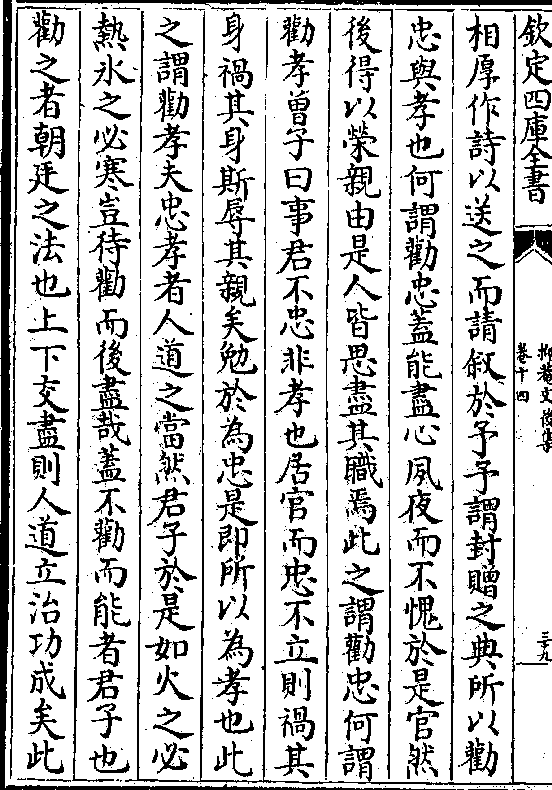 欽定四庫全書
抑菴文後集
卷十四
三十九
相厚作詩以送之而請叙於予予謂封贈之典所以勸
忠與孝也何謂勸忠蓋能盡心夙夜而不愧於是官然
後得以榮親由是人皆思盡其職焉此之謂勸忠何謂
勸孝曽子曰事君不忠非孝也居官而忠不立則禍其
身禍其身斯辱其親矣勉於為忠是即所以為孝也此
之謂勸孝夫忠孝者人道之當然君子於是如火之必
熱水之必寒豈待勸而後盡哉蓋不勸而能者君子也
勸之者朝廷之法也上下交盡則人道立治功成矣此